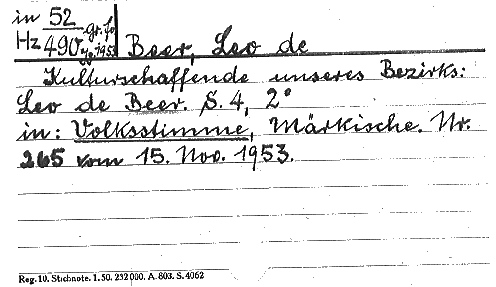 in 52 gr. fo.
Hz 490 Jg. 1953 Beer, Leo de
Kulturschaffende unseres Bezirks:
Leo de Beer. S. 4, 2°
in: Volksstimme, Märkische. Nr.
265 vom 15. Nov. 1953.
Reg. 10. Stichnote. 1. 50. 232 000. A. 803. S. 4062